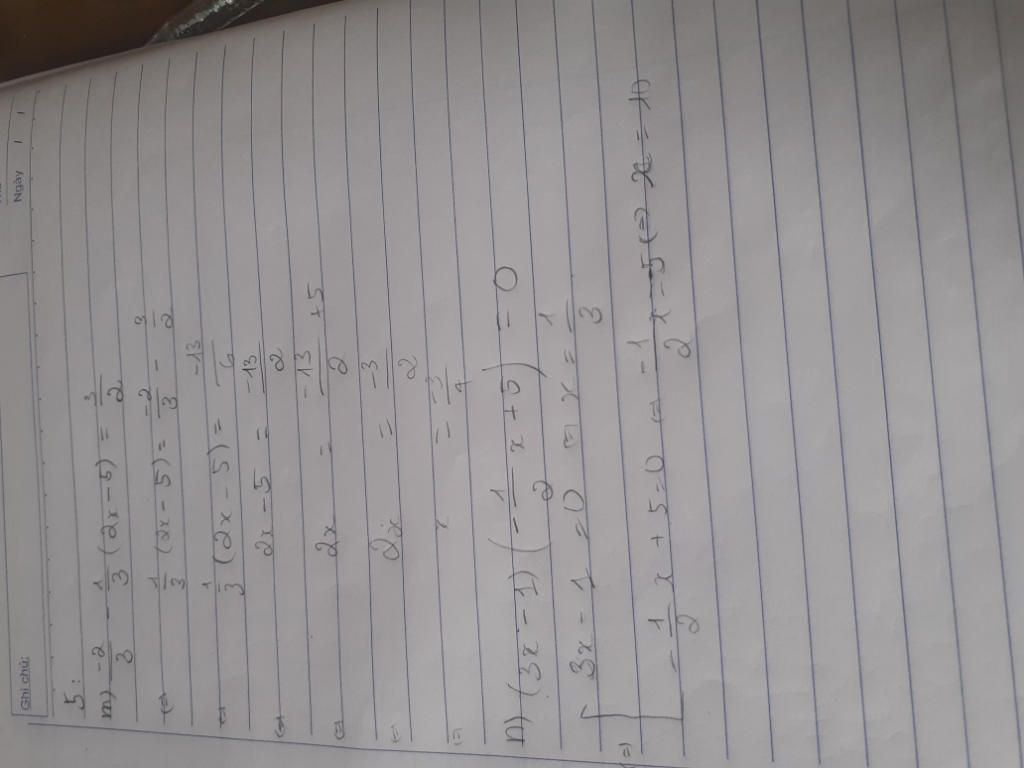 Ngày
Ghi chú:
5:
m) -2/3 - 1/3 (2x - 5) = 3/2
⇔ 1/3 (2x - 5) = -2/3 - 3/2
⇔ 1/3 (2x - 5) = -13/6
⇔ 2x - 5 = -13/2
⇔ 2x = -13/2 + 5
⇔ 2x = -3/2
⇔ x = -3/4
n) (3x - 1) (-1/2 x + 5) = 0
⇔ [ 3x - 1 = 0 ⇔ x = 1/3
-1/2 x + 5 = 0 ⇔ -1/2 x = -5 ⇔ x = 10